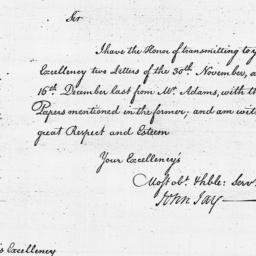 Sir
I have the Honor of transmitting to y
Excellency two Letters of the 30th. November, a
16th. December last from Mr. Adams, with th
Papers mentioned in the former; and am wit
great Respect and Esteem
Your Excellency's
Most obt. & hble: Serv
John Jay
's Excellency